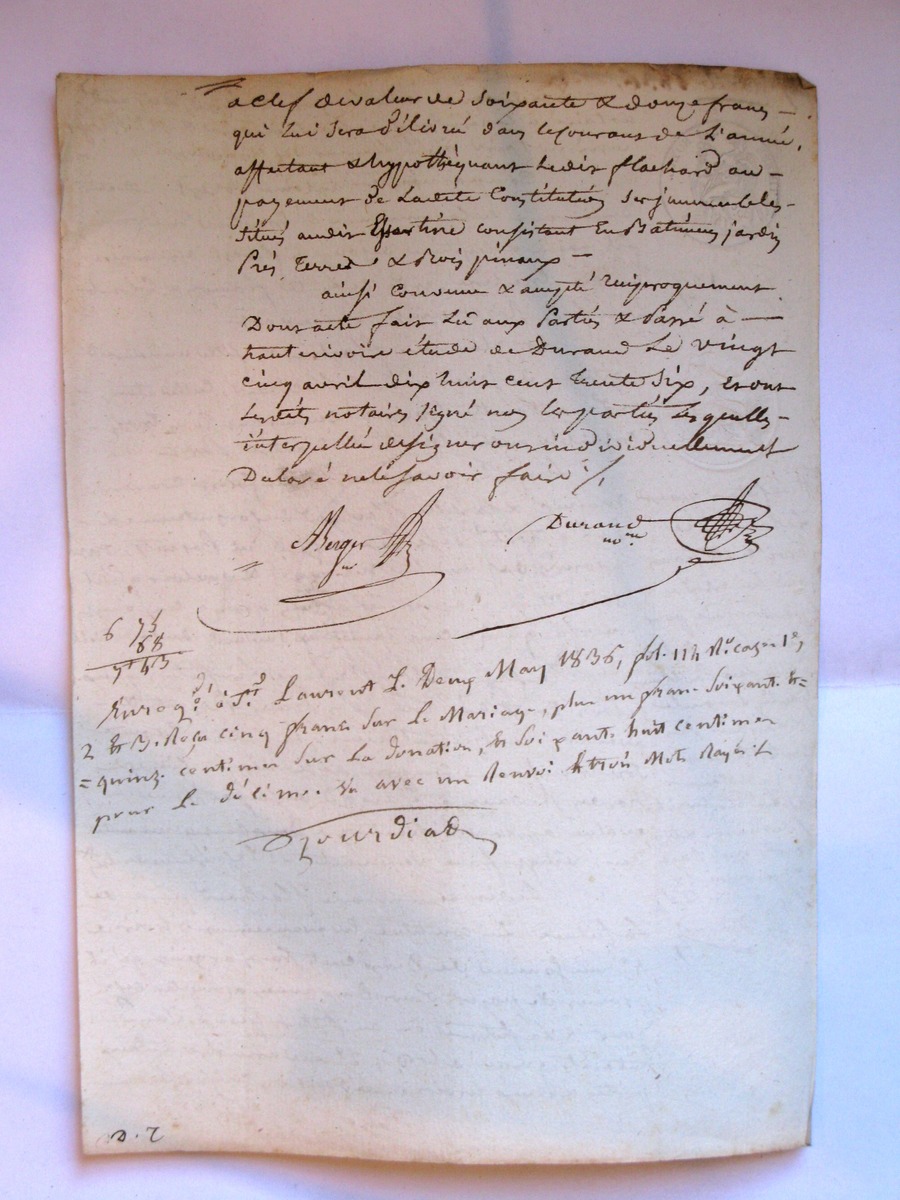 a clef de valeur de soixante & douze francs
qui lui sera délivré dans le courant de l'année,
affectant & hypothéquant ledit flachard au
payement de ladite Constitution ses immeubles
situés audit Essertine consistant En Bâtimens jardin
Prés, terres & Bois pinaux
ainsi convenu & accepté réciproquement
Dont acte fait Lu aux Parties & Passé à
hauterivoire étude de Durand Le vingt
cinq avril dix huit cent trente six, et ont
Lesdits notaires signé non les parties Lesquelles
interpellé de signer ont individuellement
Déclaré ne le savoir faire /.
Berger
Durand
no.re
6 75
68
7 43
Enregé. à St. Laurent L. Deux May 1836, fol. 114 Ro. cases 1e,
2 & 3. Reçu cinq francs sur Le Mariage, plus un franc soixante &
= quinze centimes sur La donation, & soixante huit centimes
pour Le décime. Et avec un Renvoi & trois Mots Rayés
Jourdiad
D. T